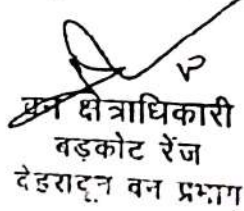 वन क्षेत्राधिकारी
बड़कोट रेंज
देहरादून वन प्रभाग